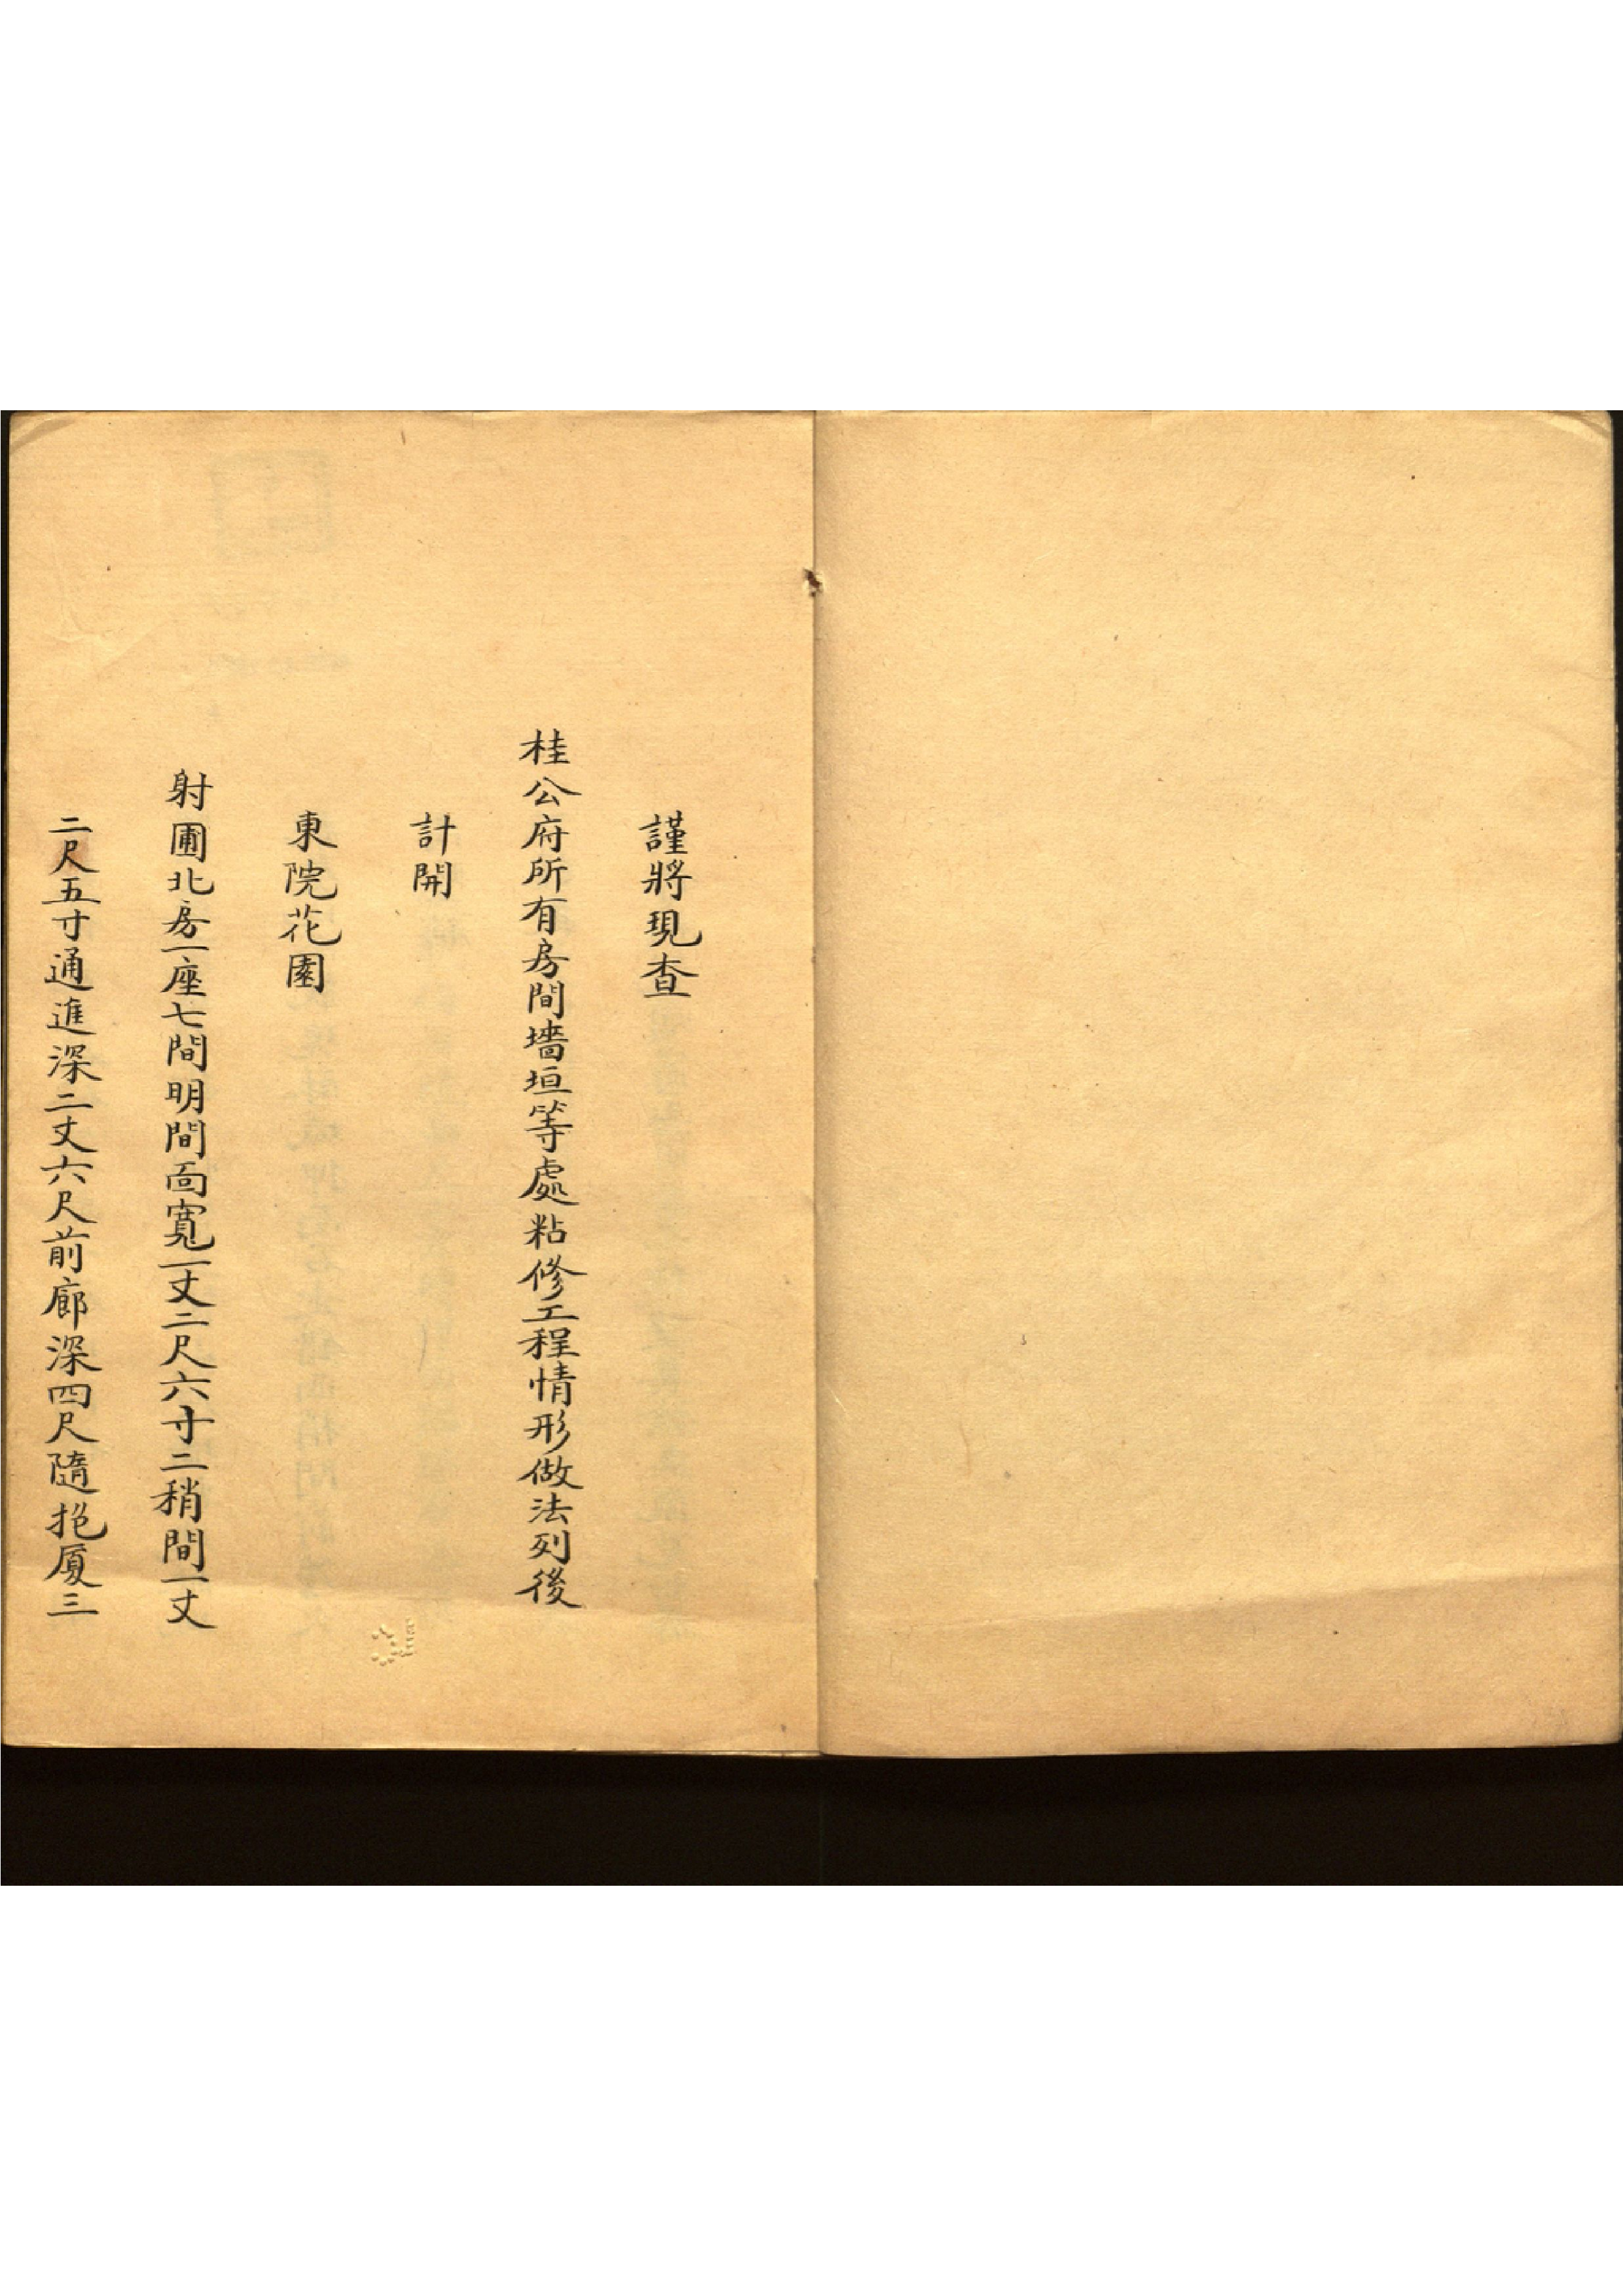 謹將現查
桂公府所有房間墻垣等處粘修工程情形做法列後
計開
東院花園
射圃北房一座七間明間面寬一丈二尺六寸二稍間一丈
二尺五寸通進深二丈六尺前廊深四尺隨抱厦三